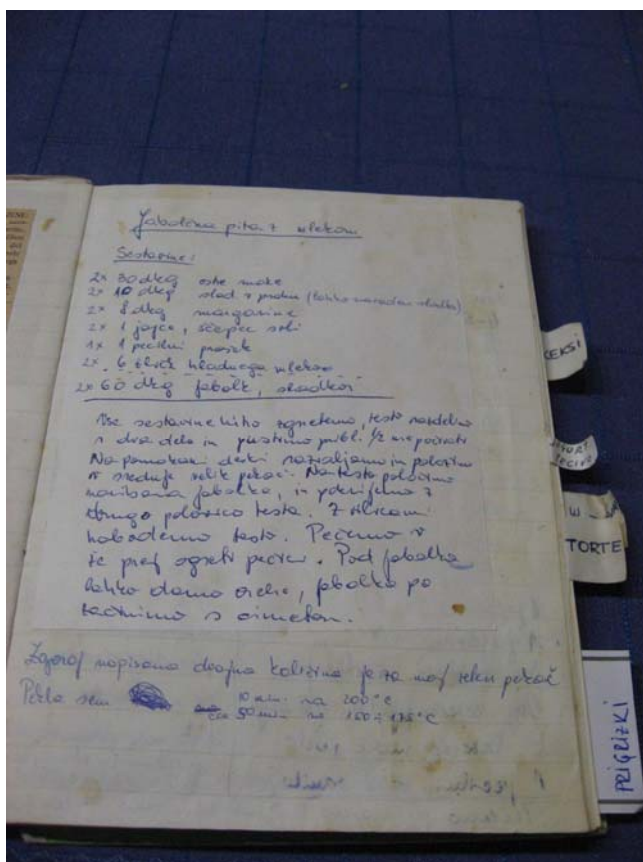 Jabolčna pita z mlekom
Sestavine:
2x 30 dkg ostre moke
2x 10 dkg slad. v prahu (lahko navaden sladkor)
2x 8 dkg margarine
2x 1 jajce, ščepec soli
1x 1 pecilni prašek
2x 6 žlic hladnega mleka
2x 60 dkg jabolk, sladkor
Vse sestavine hitro zgnetemo, testo razdelimo
v dva dela in pustimo pribl. 1/2 ure počivati
Na pomokani deski razvaljamo in položimo
v srednje velik pekač. Na testo položimo
naribana jabolka, in pokrijemo z
drugo polovico testa. Z vilicami
nabodemo testo. Pečemo v
že prej ogreti pečici. Pod jabolka
lahko damo orehe, jabolka po
začinimo s cimetom.
Zgoraj napisana dvojna količina je za moj veliki pekač
Pekla sem 10 min. na 200°C
50 min. na 150 - 175°C
KEKSI
TORTE
PRIGRIZKI